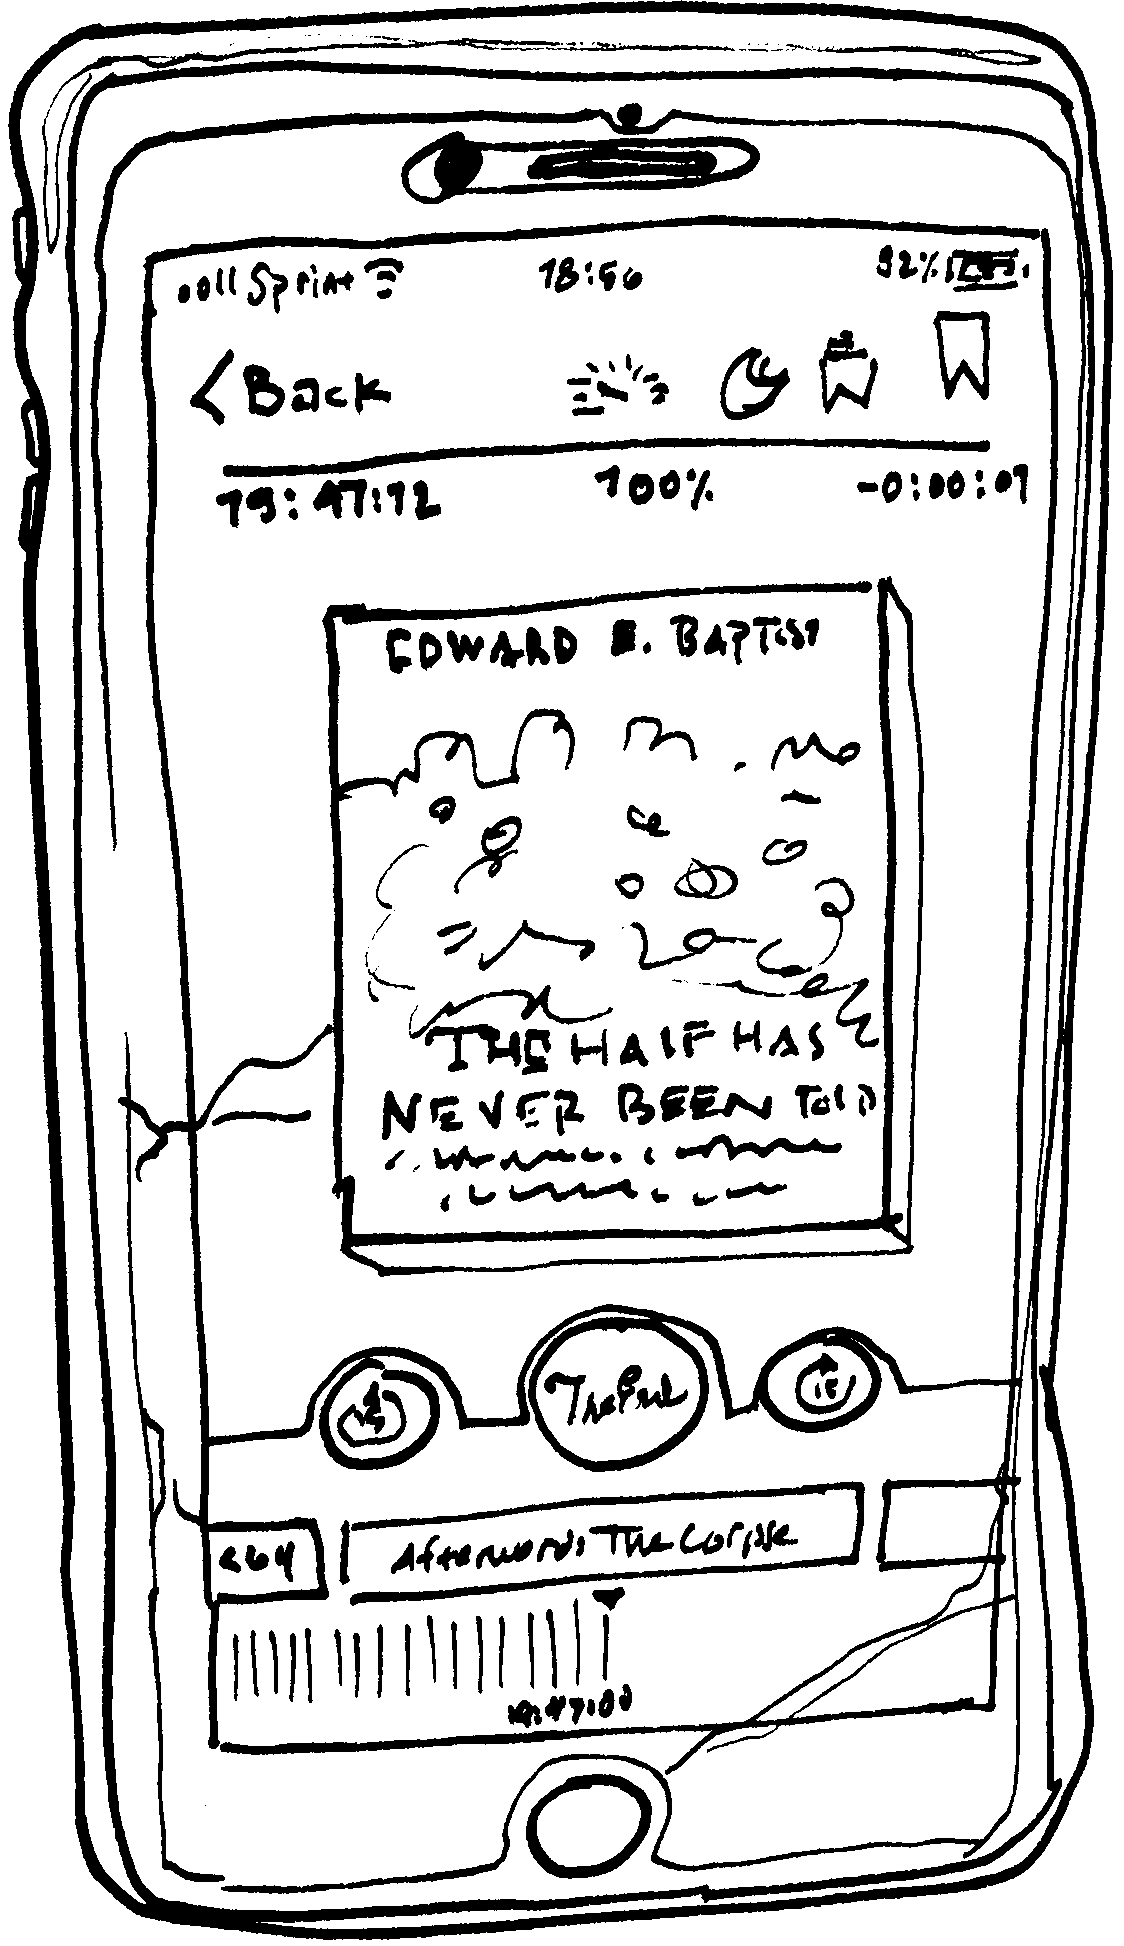 Sprint 18:56 92%
Back
19:47:12 100% -0:00:01
EDWARD E. BAPTIST
THE HALF HAS
NEVER BEEN TOLD
15 The End 15
1864 Afterword: The Corpse
19:47:00